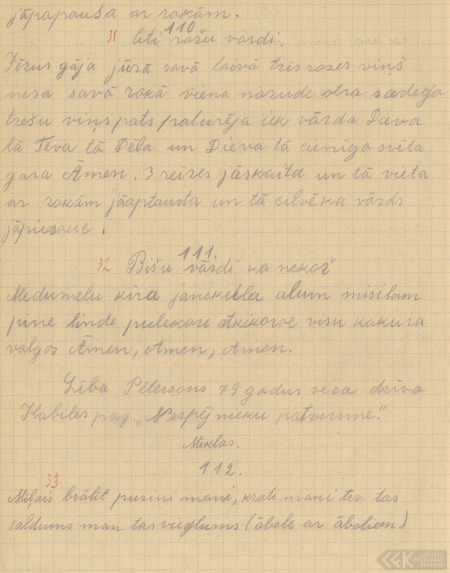 jāpapauša ar rokām.
110
31 Citi rošu vārdi.
Jēzus gāja jūrā savā laivā trīs rozes viņš
nesa savā rokā viena nozuda otra sadega
trešu viņš pats paturēja iek vārda Dieva
tā Tēva tā Dēla un Dieva tā cienīga svēta
gara Āmen. 3 reizes jāskaita un tā vieta
ar rokām jāaptausta un tā cilvēka vārds
jāpiesauc.
111.
32 Bišu vārdi ka nekož
Medumelu kira janekibla alum misilam
pine linde pulekore visu kakura
valgos Āmen, Āmen, Amen.
Lība Pētersons 79 gadus veca dzīvo
Kabiles pag. „Nespējnieku patversmē."
Mīklas.
112.
33
Mīļais brālīt purini mani, krati mani tev tas
saldums man tas vieglums (ābele ar āboliem.)